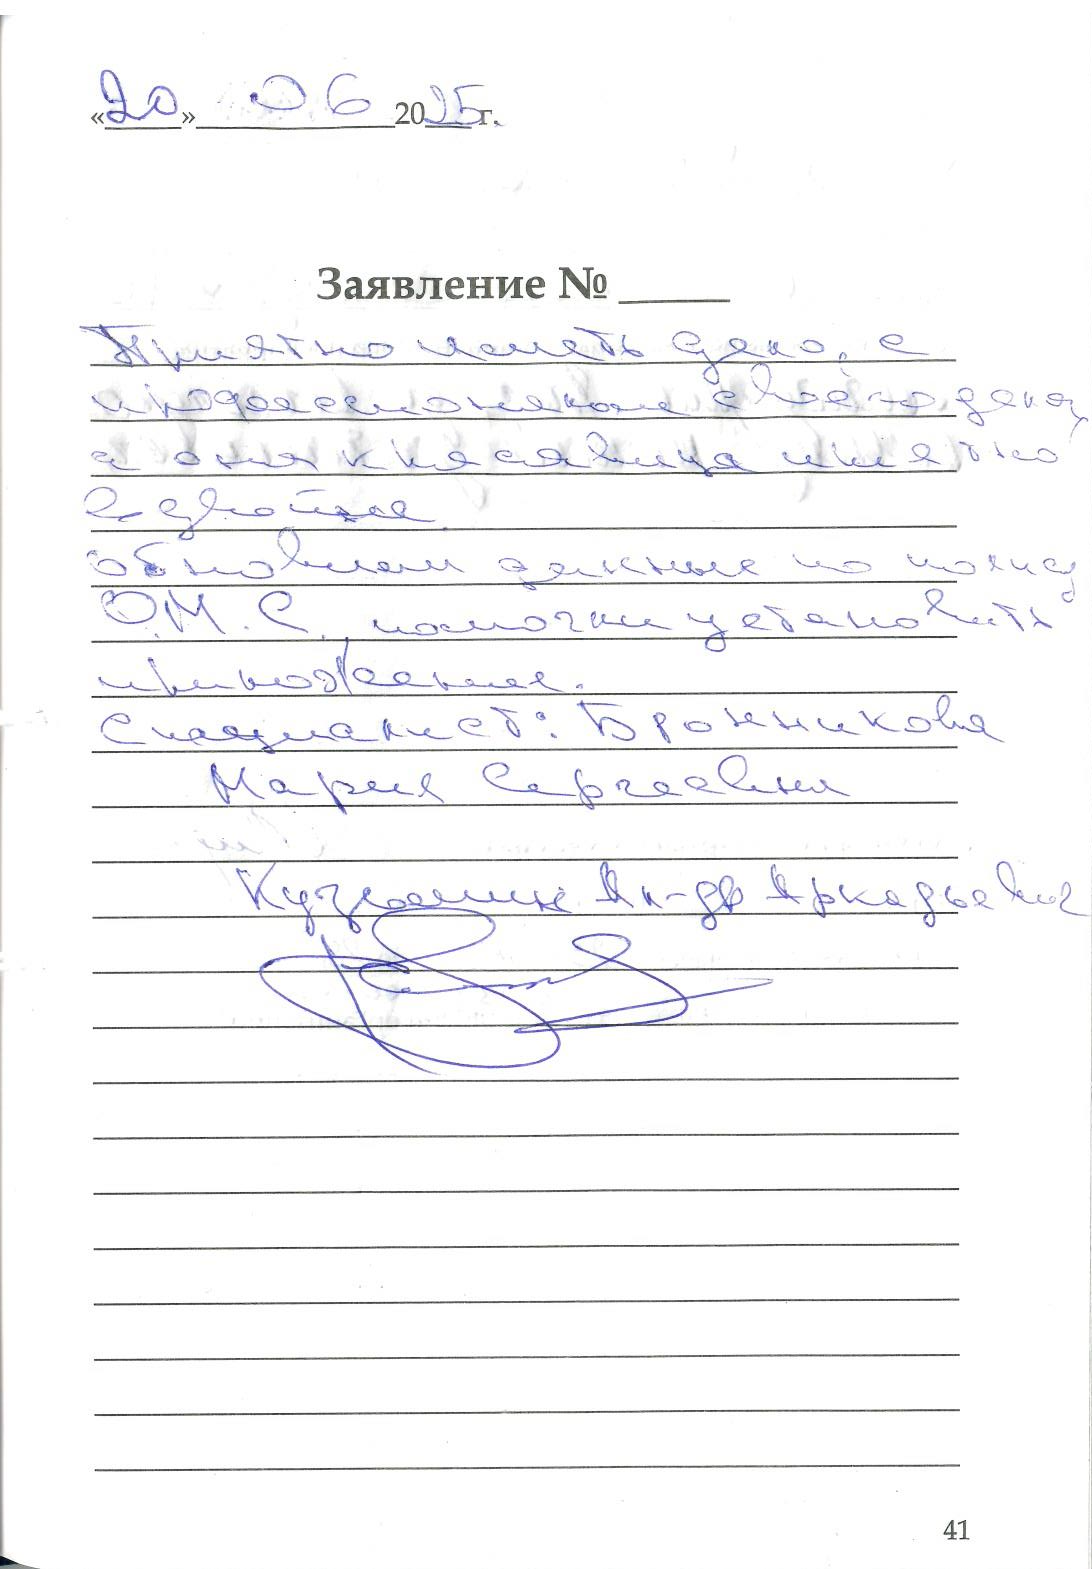 «20» 06 2025 г.
Заявление № ____
Приятно иметь дело, с
профессионалом своего дела,
а она красавица приятно
в двойне.
обновили данные по полису
О.М.С., помогли установить
приложение.
Специалист: Бронникова
Мария Сергеевна
Кузьмин Ал-др Аркадьевич
41